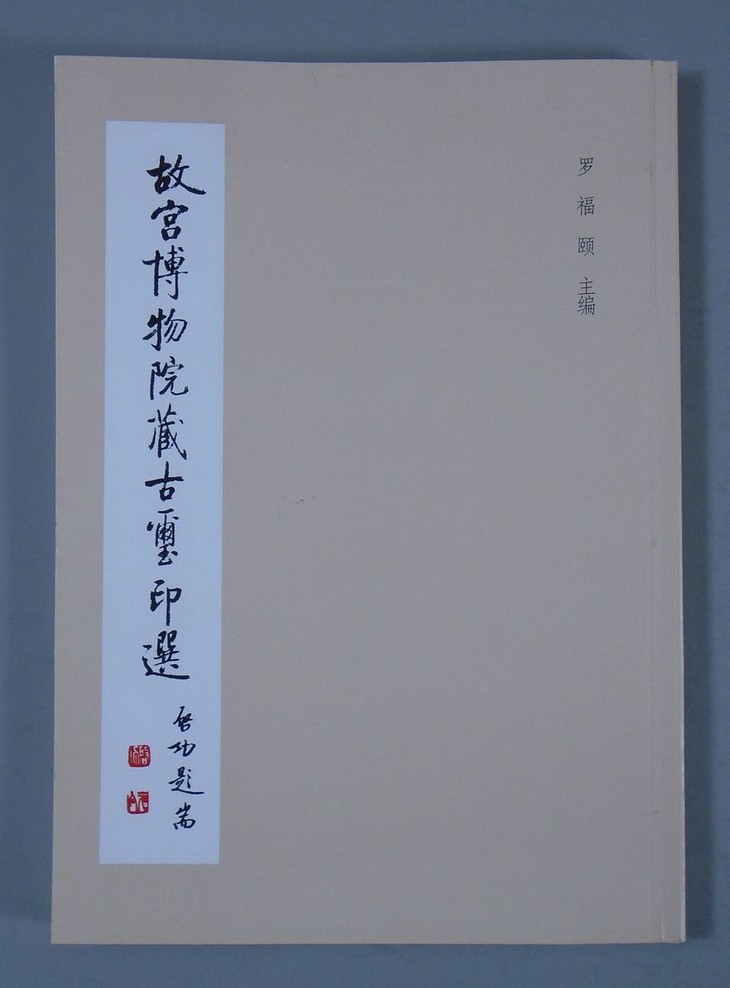 罗福颐 主编
故宫博物院藏古璽印選
啓功題耑